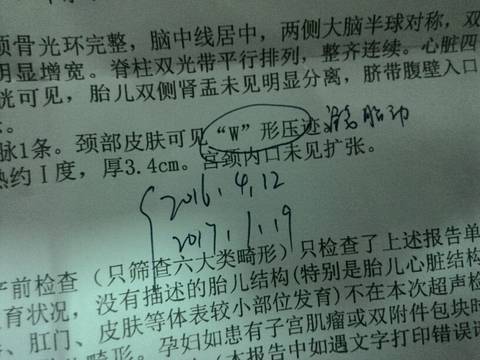 颅骨光环完整，脑中线居中，两侧大脑半球对称，双
明显增宽。脊柱双光带平行排列，整齐连续。心脏四
胱可见，胎儿双侧肾盂未见明显分离，脐带腹壁入口
脉1条。颈部皮肤可见“W”形压迹 注意胎动
熟约Ⅰ度，厚3.4cm。宫颈内口未见扩张。
2016.4.12
2017.1.19
产前检查（只筛查六大类畸形）只检查了上述报告单
育状况，没有描述的胎儿结构(特别是胎儿心脏结构
、肛门、皮肤等体表较小部位发育)不在本次超声检
畸形。孕妇如患有子宫肌瘤或双附件包块时
(本报告中如遇文字打印错误请